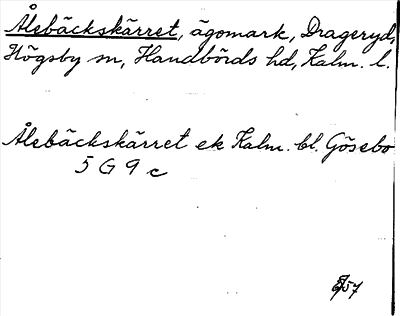 Ålebäckskärret, ägomark, Drageryd,
Högsby sn, Handbörds hd, Kalm. l.
Ålebäckskärret ek Kalm. bl. Gösebo
5 G 9 c